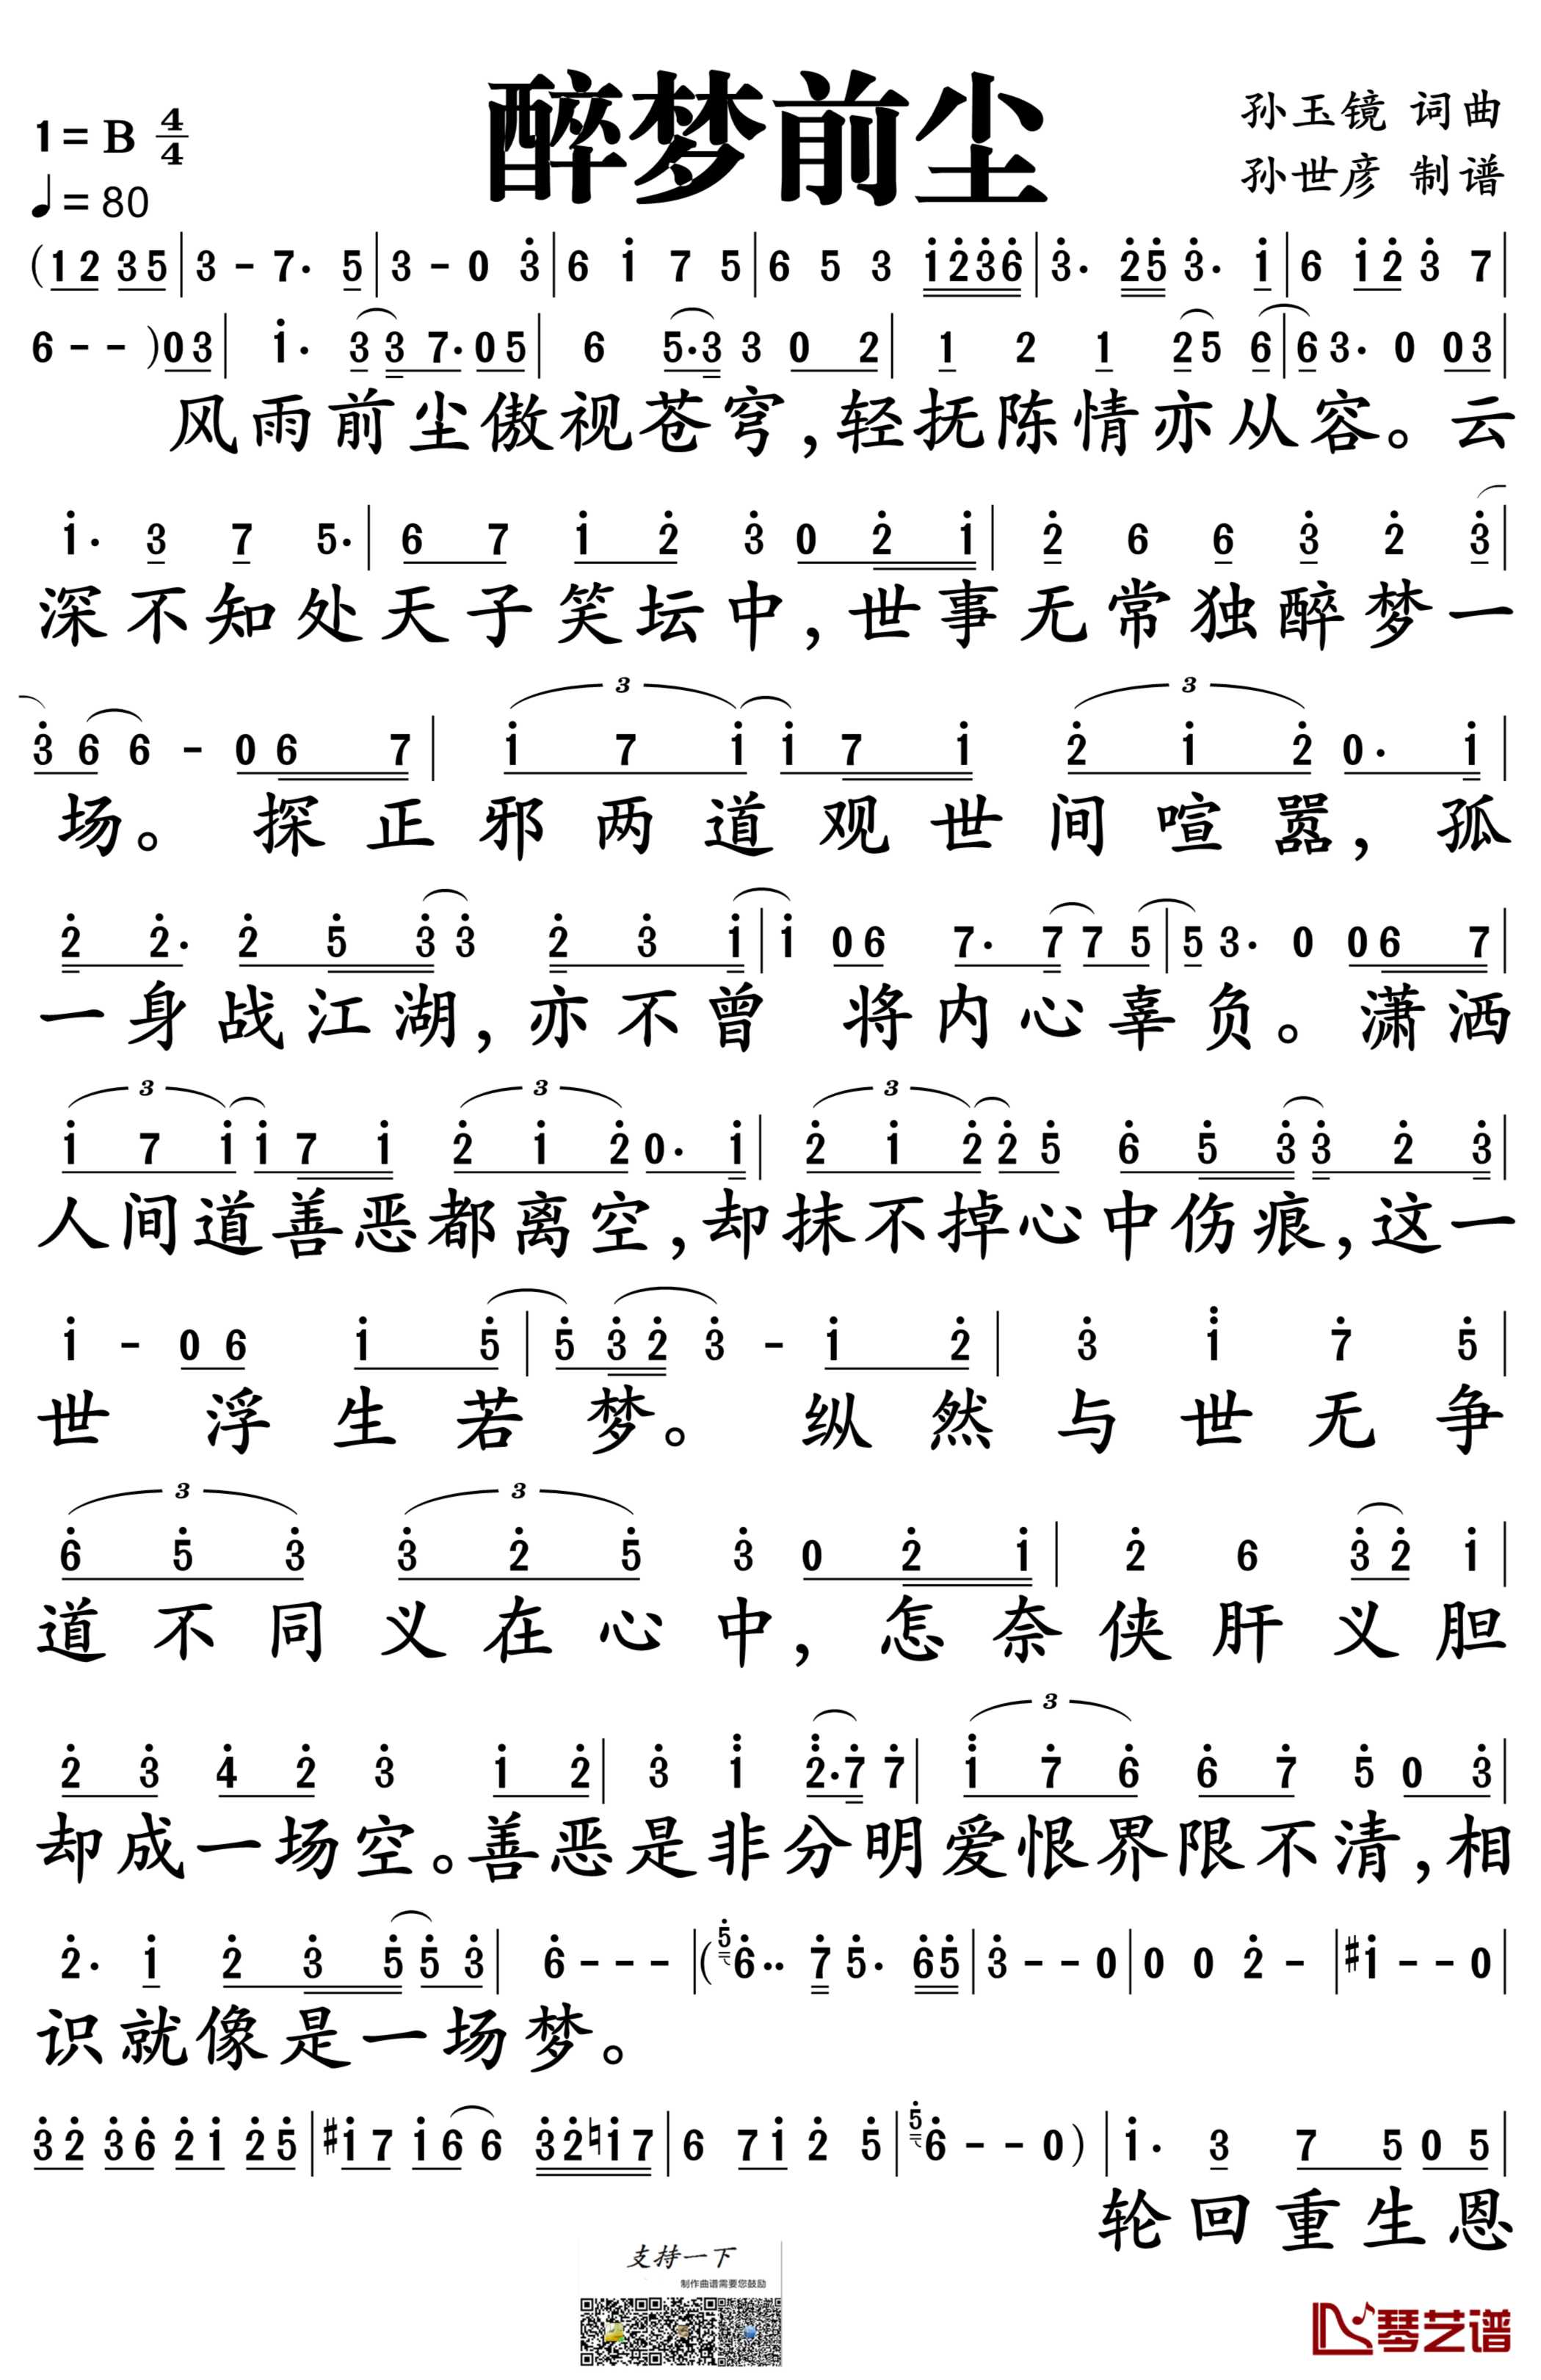 醉梦前尘
1=B 4/4
♩=80
孙玉镜 词曲
孙世彦 制谱
(12 35|3 - 7· 5|3 - 0 3̇|6 1̇ 7 5|6 5 3 1̇2̇3̇6̇|3̇· 2̇5̇ 3̇· 1̇|6 1̇2̇ 3̇ 7|
6 - - )03| 1̇· 3 3 7·05| 6 5·3 3 0 2| 1 2 1 25 6|6 3· 0 03|
风雨前尘傲视苍穹,轻抚陈情亦从容。云
1̇· 3 7 5·|6 7 1̇ 2̇ 3̇ 0 2̇ 1̇|2̇ 6 6 3̇ 2̇ 3̇|
深不知处天子笑坛中,世事无常独醉梦一
3̇ 6 6 - 0 6 7| 3 1̇ 7 1̇ 1̇ 7 1̇ 3 2̇ 1̇ 2̇ 0· 1̇|
场。探正邪两道观世间喧嚣,孤
2̇ 2̇· 2̇ 5̇ 3̇ 3̇ 2̇ 3̇ 1̇|1̇ 06 7· 7 7 5|5 3· 0 06 7|
一身战江湖,亦不曾 将内心辜负。潇洒
3 1̇ 7 1̇ 1̇ 7 1̇ 3 2̇ 1̇ 2̇ 0· 1̇| 3 2̇ 1̇ 2̇ 2̇ 5̇ 6̇ 5̇ 3̇ 3̇ 2̇ 3̇|
人间道善恶都离空,却抹不掉心中伤痕,这一
1̇ - 0 6 1̇ 5̇|5̇ 3̇ 2̇ 3̇ - 1̇ 2̇| 3̇ 1̈ 7̇ 5̇|
世浮生若梦。纵然与世无争
3 6̇ 5̇ 3̇ 3 3̇ 2̇ 5̇ 3̇ 0 2̇ 1̇| 2̇ 6 3̇ 2̇ 1̇|
道不同义在心中,怎奈侠肝义胆
2̇ 3̇ 4̇ 2̇ 3̇ 1̇ 2̇| 3̇ 1̈ 2̈·7̇ 7̇| 3 1̈ 7̇ 6̇ 6̇ 7̇ 5̇ 0 3̇|
却成一场空。善恶是非分明爱恨界限不清,相
2̇· 1̇ 2̇ 3̇ 5̇ 5̇ 3̇| 6̇ - - - |(5̇ 6̇·· 7̇ 5̇· 6̇5̇|3̇ - - 0|0 0 2̇ - |#1̇ - - 0|
识就像是一场梦。
3̇2̇ 3̇6̇ 2̇1̇ 2̇5̇|#1̇7 1̇6 6 3̇2̇♮1̇7|6 71̇ 2̇ 5̇|5̇ 6̇ - - 0) |1̇· 3 7 5 0 5|
轮回重生恩
支持一下
制作曲谱需要您鼓励
琴艺谱